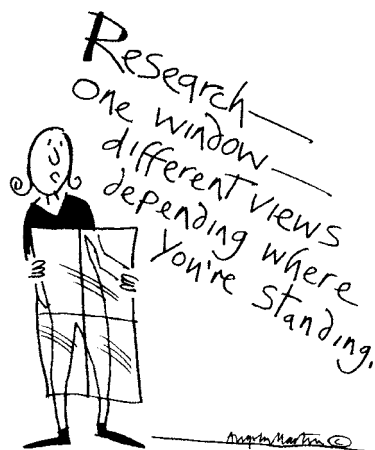 Research—
one window—
different views
depending where
you're standing.
Angela Martin ©